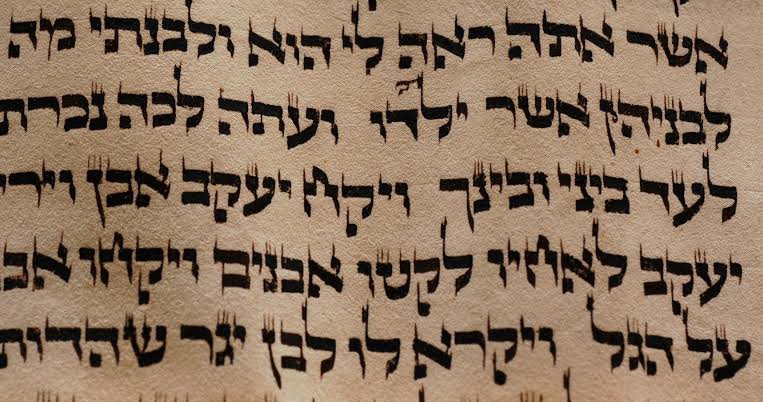 אשר אתה ראה לי הוא ולבנתי מה
לבניהן אשר ילדו ועתה לכה נכרת
לעד ביני ובינך ויקח יעקב אבן וירי
יעקב לאחיו לקטו אבנים ויקחו אב
על הגל ויקרא לו לבן יגר שהדות